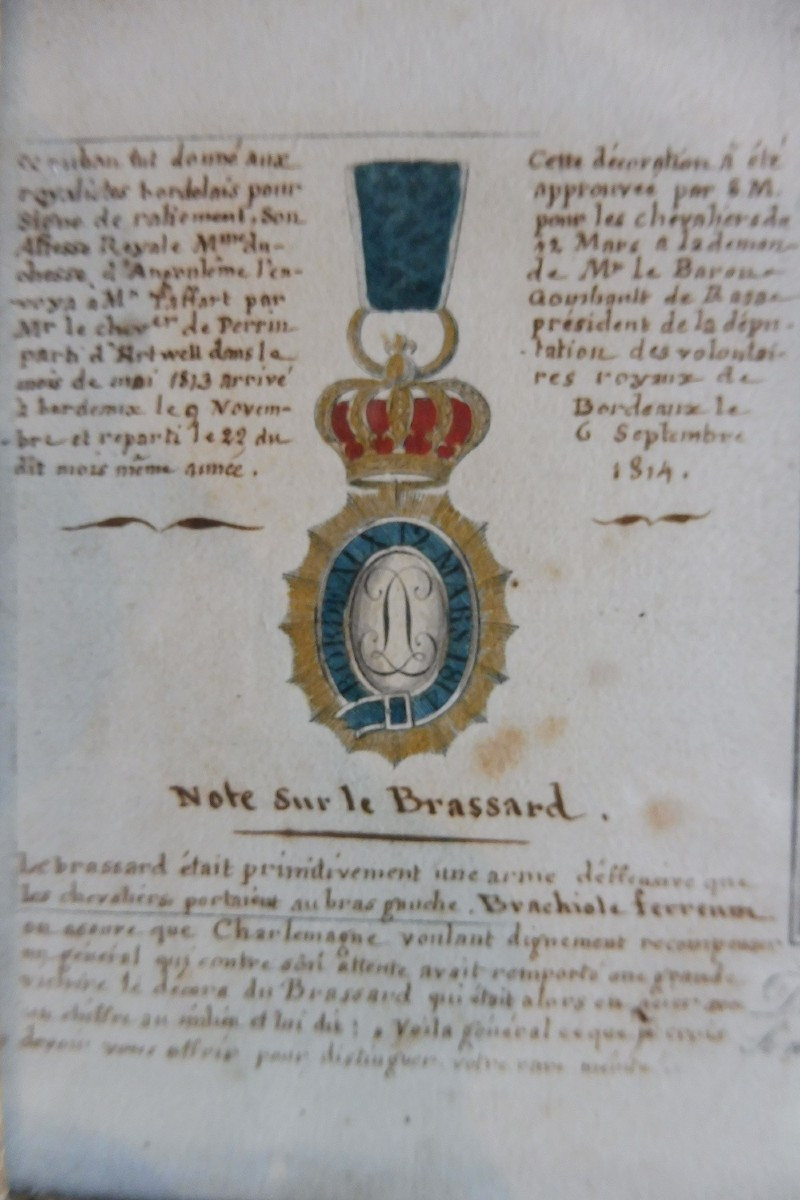 ce ruban fut donné aux
royalistes bordelais pour
signe de raliement. Son
Altesse Royale Mme du-
chesse d'Angoulême l'en-
voya à Mr Taffart par
Mr le chever de Perrin
parti d'Artwell dans le
mois de mai 1813 arrivé
à bordeaux le 9 Novem-
bre et reparti le 22 du
dit mois même année.
Cette décoration a été
approuvée par S.M.
pour les chevaliers du
12 Mars a la deman-
de Mr le Baron
de
président de la dépu-
tation des volontai-
res royaux de
Bordeaux le
6 Septembre
1814.
BORDEAUX 12 MARS 1814
Note sur le Brassard.
Le brassard était primitivement une arme déffensive que
les chevaliers portaient au bras gauche. Brachiale ferreum
on assure que Charlemagne voulant dignement recompenser
un général qui contre son attente avait remporté une grande
victoire le décora du Brassard qui était alors en
un chiffre au milieu et lui dit: Voila général ce que je crois
devoir vous offrir pour distinguer votre rare